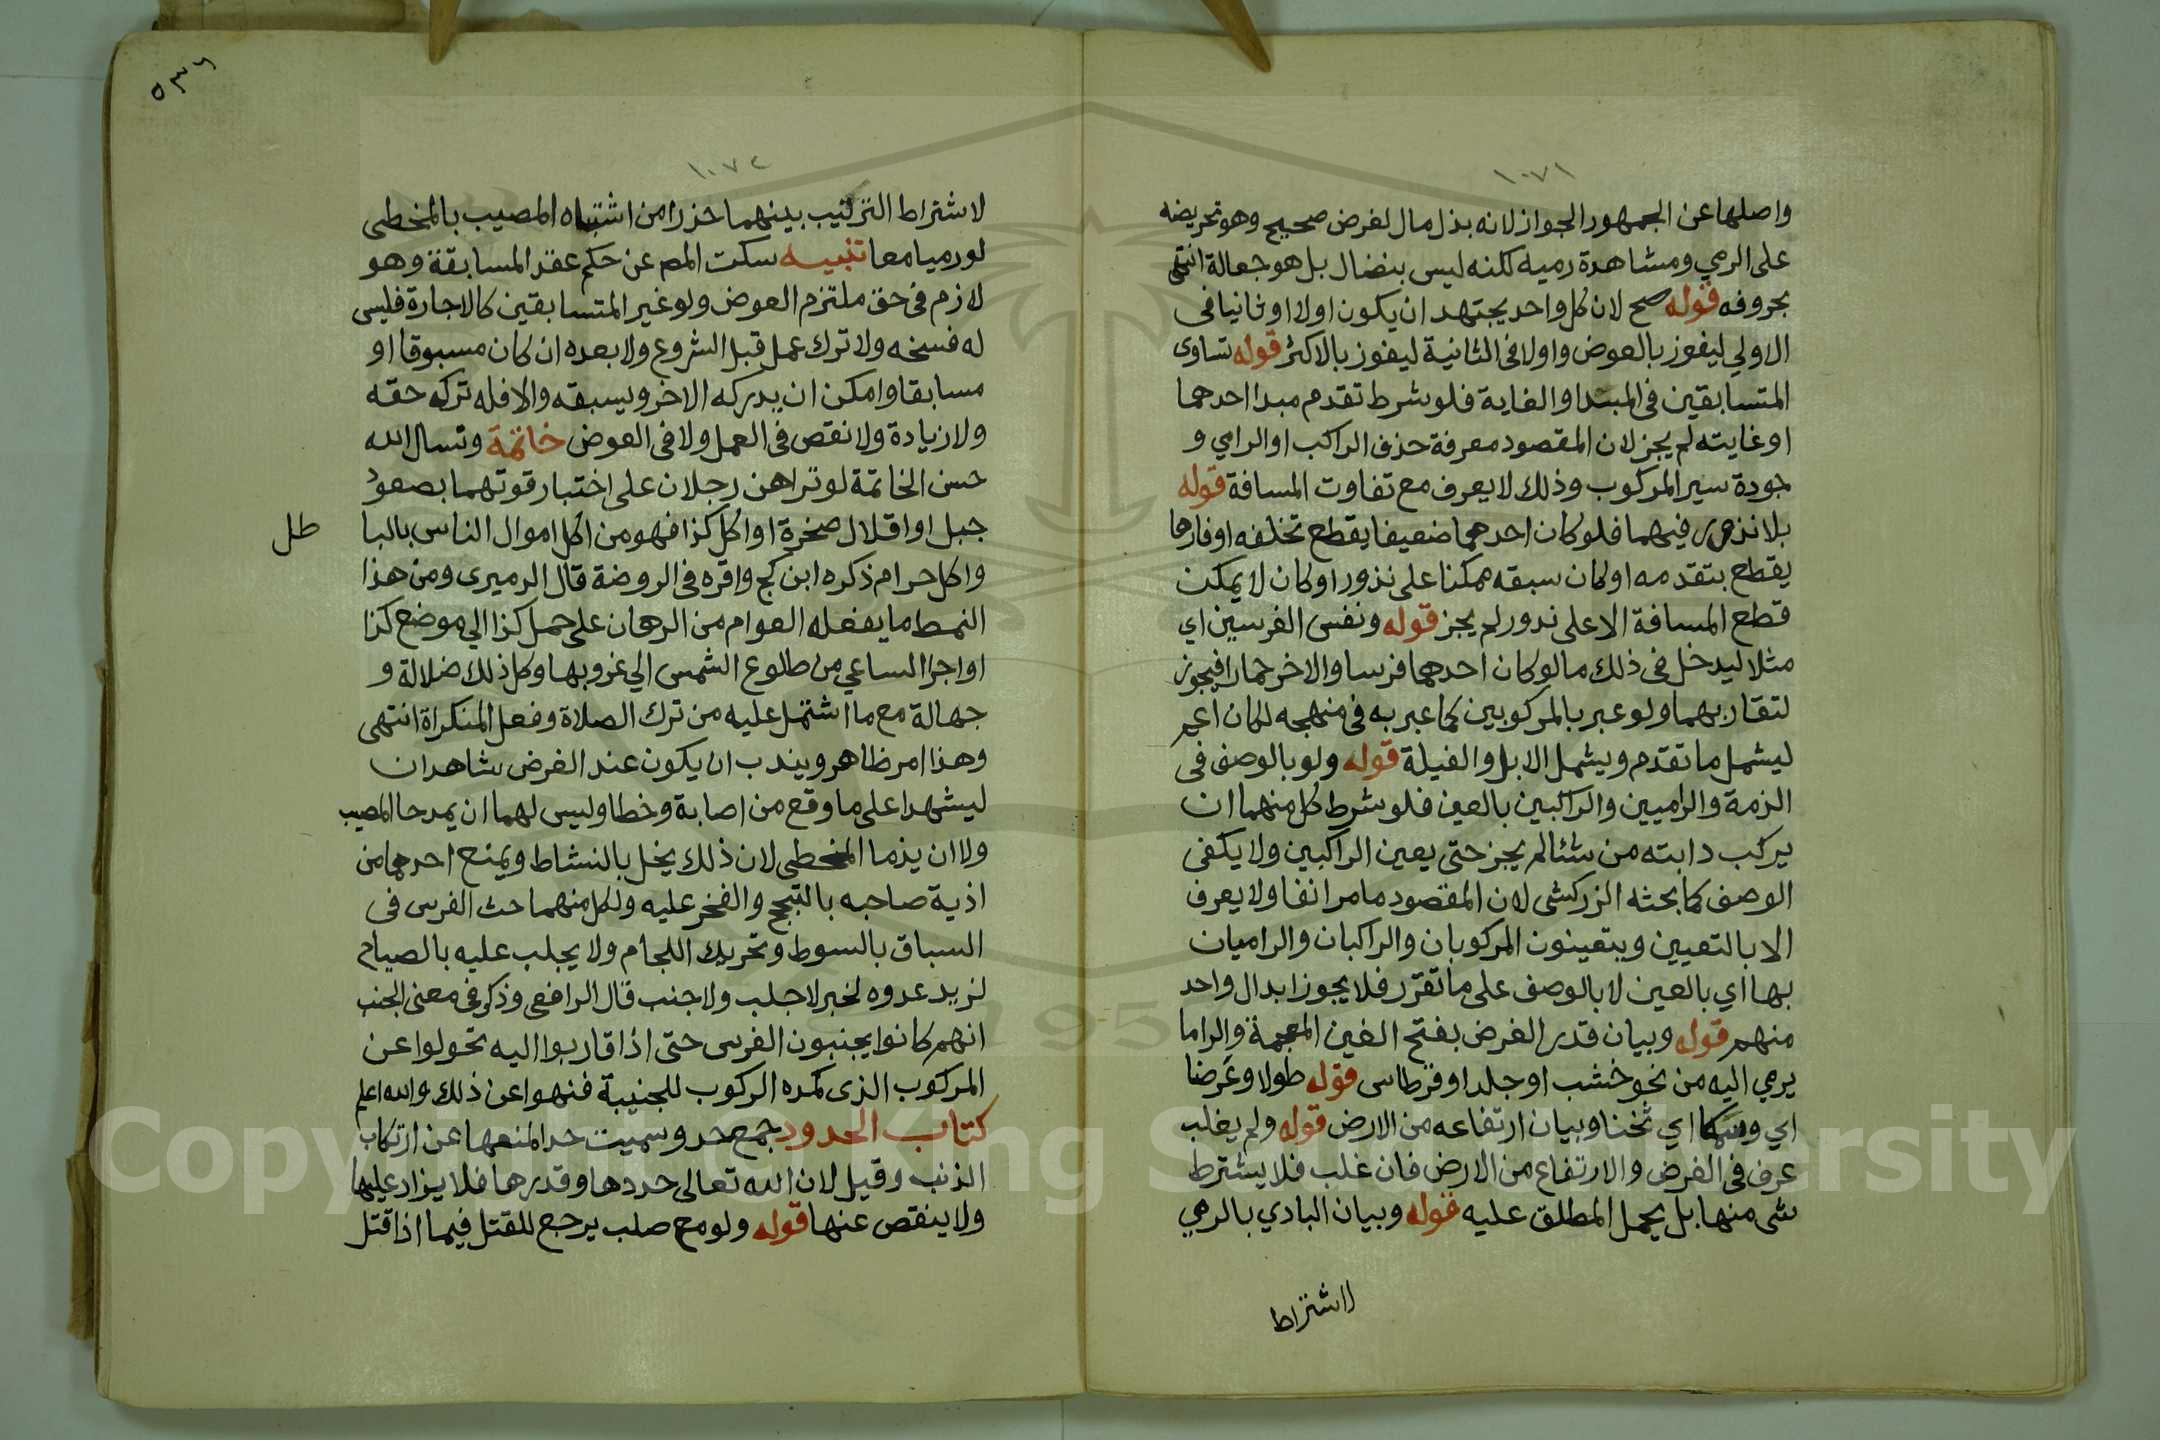 ١٠٧١
واصلها عن الجمهور الجواز لانه بذل مال لغرض صحيح وهو تحريضه
على الرمي ومشاهدة رميه لكنه ليس بنضال بل هو جعالة انتهى
بحروفه قوله صح لان كل واحد يجتهد ان يكون اولا او ثانيا في
الاولي ليفوز بالعوض واولا في الثانية ليفوز بالاكثر قوله تساوى
المتسابقين في المبتدا والغاية فلو شرط تقدم مبدا احدهما
او غايته لم يجز لان المقصود معرفة حذق الراكب او الرامي و
جودة سير المركوب وذلك لا يعرف مع تفاوت المسافة قوله
بلا ندور فيهما فلو كان احدهما ضعيفا يقطع تخلفه او فارها
يقطع بتقدمه او كان سبقه ممكنا على ندور او كان لا يمكن
قطع المسافة الا على ندور لم يجز قوله ونفس الفرسين اي
مثلا ليدخل في ذلك ما لو كان احدهما فرسا والاخر حمارا فيجوز
لتقاربهما ولو عبر بالمركوبين كما عبر به في منهجه لكان اعم
ليشمل ما تقدم ويشمل الابل والفيلة قوله ولو بالوصف في
الذمة والراميين والراكبين بالعين فلو شرط كل منهما ان
يركب دابته من شئا لم يجز حتى يعين الراكبين ولا يكفى
الوصف كما بحثه الزركشى لان المقصود ما مر انفا ولا يعرف
الا بالتعيين ويتعينون المركوبان والراكبان والراميان
بها اي بالعين لا بالوصف على ما تقرر فلا يجوز ابدال واحد
منهم قوله وبيان قدر الغرض بفتح الغين المعجمة والراما
يرمي اليه من نحو خشب او جلد او قرطاس قوله طولا وعرضا
اي وسمكا اي ثخنا وبيان ارتفاعه من الارض قوله ولم يغلب
عرف في الغرض والارتفاع من الارض فان غلب فلا يشترط
شى منها بل يحمل المطلق عليه قوله وبيان البادي بالرمي
لاشتراط
٥٣٦
١٠٧٢
لاشتراط الترتيب بينهما حذرا من اشتباه المصيب بالمخطى
لو رميا معا تنبيه سكت المص عن حكم عقد المسابقة وهو
لازم في حق ملتزم العوض ولو غير المتسابقين كالاجارة فليس
له فسخه ولا ترك عمل قبل الشروع ولا بعده ان كان مسبوقا او
مسابقا وامكن ان يدركه الاخر ويسبقه والا فله تركه حقه
ولا زيادة ولا نقص في العمل ولا في العوض خاتمة ونسال الله
حسن الخاتمة لو تراهن رجلان على اختبار قوتهما بصعود
جبل او اقلال صخرة او اكل كذا فهو من اكل اموال الناس بالبا
طل
واكل حرام ذكره ابن كج واقره في الروضة قال الدميرى ومن هذا
النمط ما يفعله العوام من الرهان على حمل كذا الي موضع كذا
او اجرا الساعي من طلوع الشمس الي غروبها وكل ذلك ضلالة و
جهالة مع ما اشتمل عليه من ترك الصلاة وفعل المنكراة انتهى
وهذا امر ظاهر ويندب ان يكون عند الغرض شاهدان
ليشهدا على ما وقع من اصابة وخطا وليس لهما ان يمدحا المصيب
ولا ان يذما المخطى لان ذلك يخل بالنشاط ويمنع احدهما من
اذية صاحبه بالتبجح والفخر عليه ولكل منهما حث الفرس في
السباق بالسوط وتحريك اللجام ولا يجلب عليه بالصياح
لزيد عدوه لخبر لا جلب ولا جنب قال الرافعى وذكر في معنى الجنب
انهم كانوا يجنبون الفرس حتى اذا قاربوا اليه تحولوا عن
المركوب الذى كده الركوب للجنيبة فنهوا عن ذلك والله اعلم
كتاب الحدود جمع حد وسميت حدا لمنعها عن ارتكاب
الذنب وقيل لان الله تعالى حددها وقدرها فلا يزاد عليها
ولا ينقص عنها قوله ولو مع صلب يرجع للقتل فيما اذا قتل
Copyright © King Saud University
195